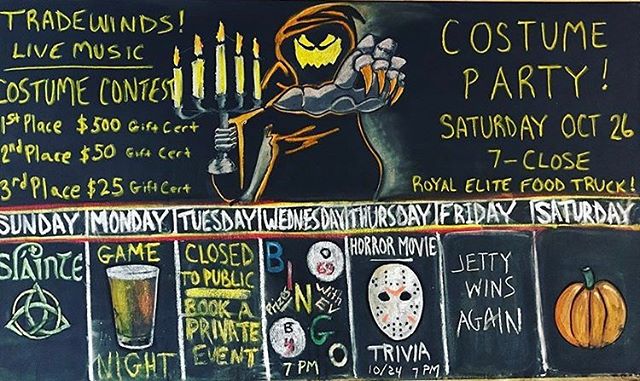 TRADEWINDS!
LIVE MUSIC
COSTUME CONTEST
1st Place $500 Gift Cert
2nd Place $50 Gift Cert
3rd Place $25 Gift Cert
COSTUME
PARTY!
SATURDAY OCT 26
7-CLOSE
ROYAL ELITE FOOD TRUCK!
SUNDAY MONDAY TUESDAY WEDNESDAY THURSDAY FRIDAY SATURDAY
Sláinte
GAME
NIGHT
CLOSED
TO PUBLIC
BOOK A
PRIVATE
EVENT
BINGO
O
69
B
4
with
7 PM
HORROR MOVIE
TRIVIA
10/24 7 PM
JETTY
WINS
AGAIN